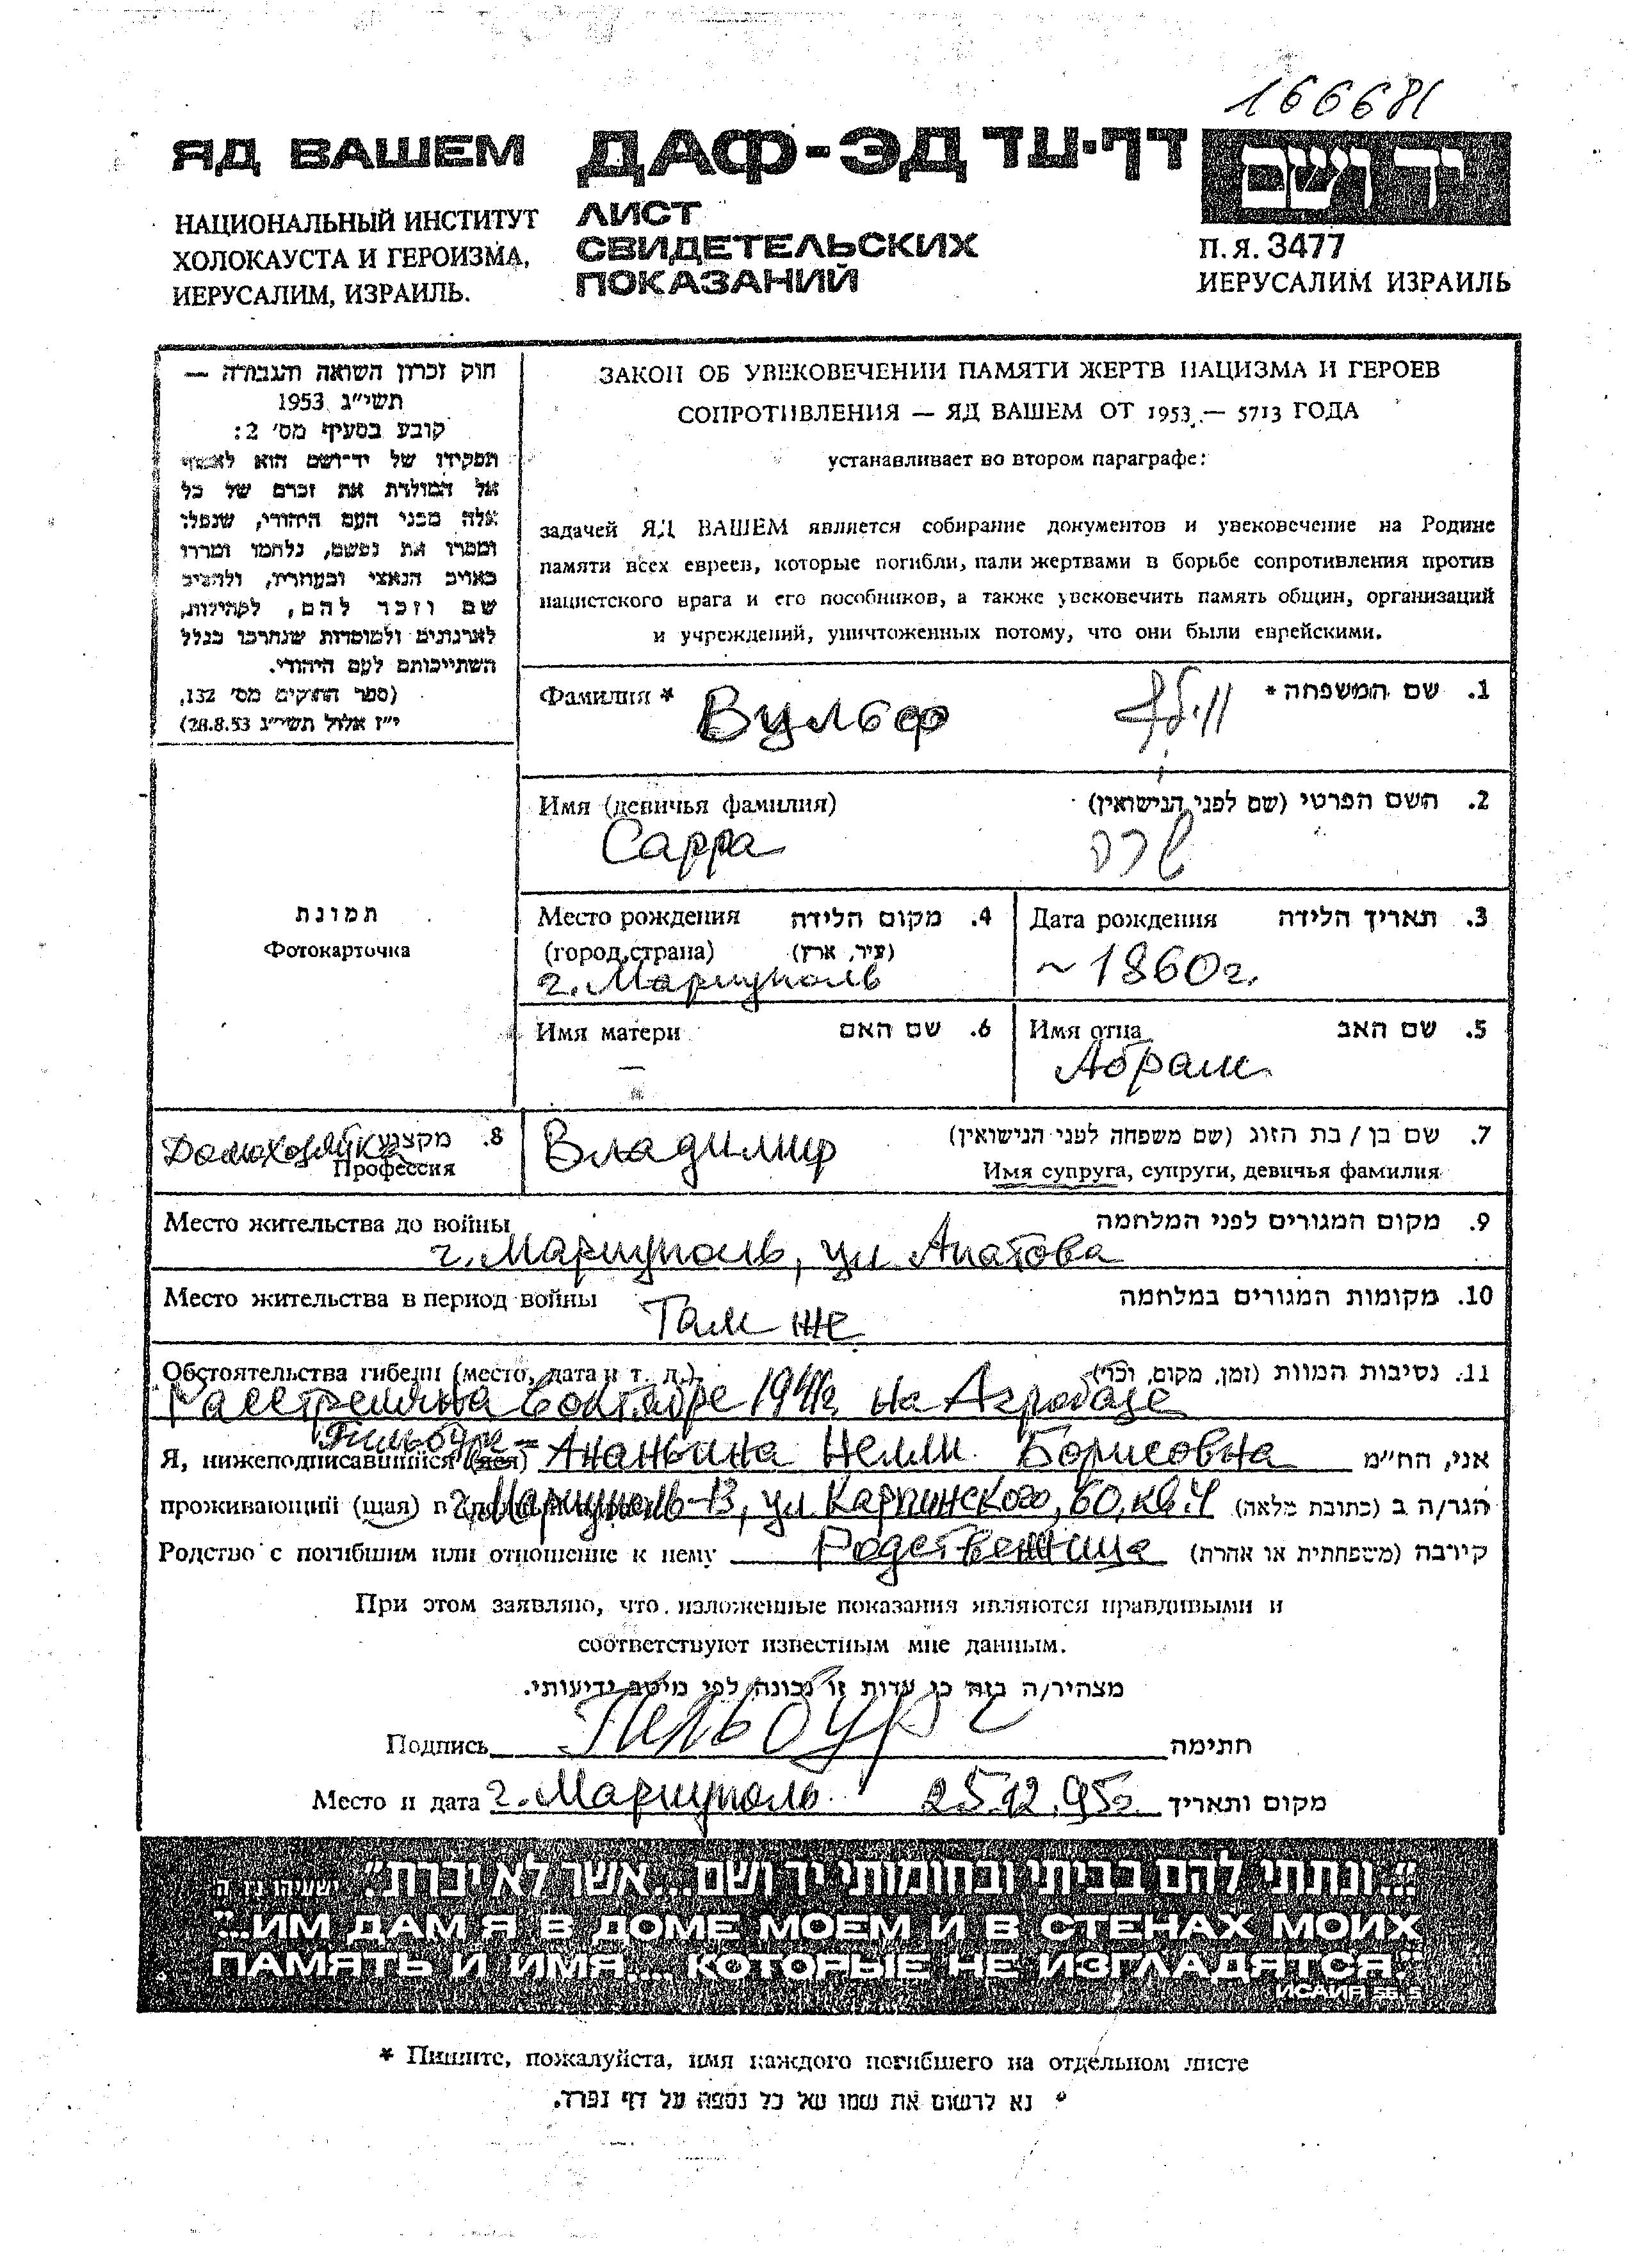 166681
ЯД ВАШЕМ ДАФ-ЭД דף-עד יד ושם
НАЦИОНАЛЬНЫЙ ИНСТИТУТ
ХОЛОКАУСТА И ГЕРОИЗМА,
ИЕРУСАЛИМ, ИЗРАИЛЬ.
ЛИСТ
СВИДЕТЕЛЬСКИХ
ПОКАЗАНИЙ
П.Я. 3477
ИЕРУСАЛИМ ИЗРАИЛЬ
חוק זכרון השואה והגבורה —
תשי״ג 1953
קובע בסעיף מס׳ 2:
תפקידו של יד־ושם הוא לאסוף
אל המולדת את זכרם של כל
אלה מבני העם היהודי, שנפלו
ומסרו את נפשם, נלחמו ומרדו
באויב הנאצי ובעוזריו, ולהציב
שם וזכר להם, לקהילות,
לארגונים ולמוסדות שנחרבו בגלל
השתייכותם לעם היהודי.
(ספר החוקים מס׳ 132,
י״ז אלול תשי״ג 28.8.53)
ЗАКОН ОБ УВЕКОВЕЧЕНИИ ПАМЯТИ ЖЕРТВ НАЦИЗМА И ГЕРОЕВ
СОПРОТИВЛЕНИЯ — ЯД ВАШЕМ ОТ 1953 — 5713 ГОДА
устанавливает во втором параграфе:
задачей ЯД ВАШЕМ является собирание документов и увековечение на Родине
памяти всех евреев, которые погибли, пали жертвами в борьбе сопротивления против
нацистского врага и его пособников, а также увековечить память общин, организаций
и учреждений, уничтоженных потому, что они были еврейскими.
Фамилия * Вульф וולף 1. שם המשפחה *
Имя (девичья фамилия) 2. השם הפרטי (שם לפני הנישואין)
Сарра שרה
תמונת
Фотокарточка
Место рождения 4. מקום הלידה
(город, страна) (עיר, ארץ)
г. Мариуполь
Дата рождения 3. תאריך הלידה
~ 1860г.
Имя матери 6. שם האם
—
Имя отца 5. שם האב
Абрам
Домохозяйка 8. מקצוע
Профессия
Владимир 7. שם בן / בת הזוג (שם משפחה לפני הנישואין)
Имя супруга, супруги, девичья фамилия
Место жительства до войны 9. מקום המגורים לפני המלחמה
г. Мариуполь, ул Апатова
Место жительства в период войны 10. מקומות המגורים במלחמה
Там же
Обстоятельства гибели (место, дата и т. д.) 11. נסיבות המוות (זמן, מקום, וכו׳)
Расстреляна в октябре 1941г. на Агробазе
Гильбург –
Я, нижеподписавшийся (аяся) Ананьина Нелли Борисовна אני, הח״מ
проживающий (щая) в г. Мариуполь-13, ул Карпинского, 60, кв. 4 הגר/ה ב (כתובת מלאה)
Родство с погибшим или отношение к нему Родственница קירבה (משפחתית או אחרת)
При этом заявляю, что изложенные показания являются правдивыми и
соответствуют известным мне данным.
מצהיר/ה בזה כי עדות זו נכונה לפי מיטב ידיעותי.
Подпись Гильбург חתימה
Место и дата г. Мариуполь 25.12.95г. מקום ותאריך
״...ונתתי להם בביתי ובחומותי יד ושם...אשר לא יכרת״. ישעיהו נו, ה
"...ИМ ДАМ Я В ДОМЕ МОЕМ И В СТЕНАХ МОИХ
ПАМЯТЬ И ИМЯ... КОТОРЫЕ НЕ ИЗГЛАДЯТСЯ."
ИСАИЯ 56, 5
* Пишите, пожалуйста, имя каждого погибшего на отдельном листе
* נא לרשום את שמו של כל נספה על דף נפרד.